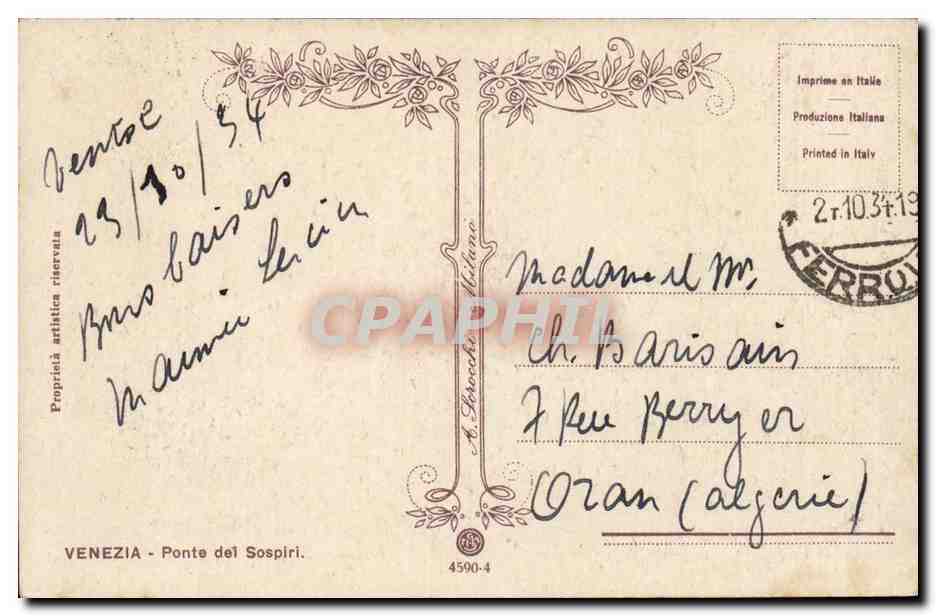 Venise
23/10/34
Bons baisers
Mamie
Proprietà artistica riservata
A. Scrocchi Milano
CPAPHIL
Imprime en Italie
Produzione Italiana
Printed in Italy
10.34.19
FERROV
Madame et Mr
Ch. Barisain
7 Rue Berryer
Oran (algerie)
VENEZIA - Ponte dei Sospiri.
4590-4